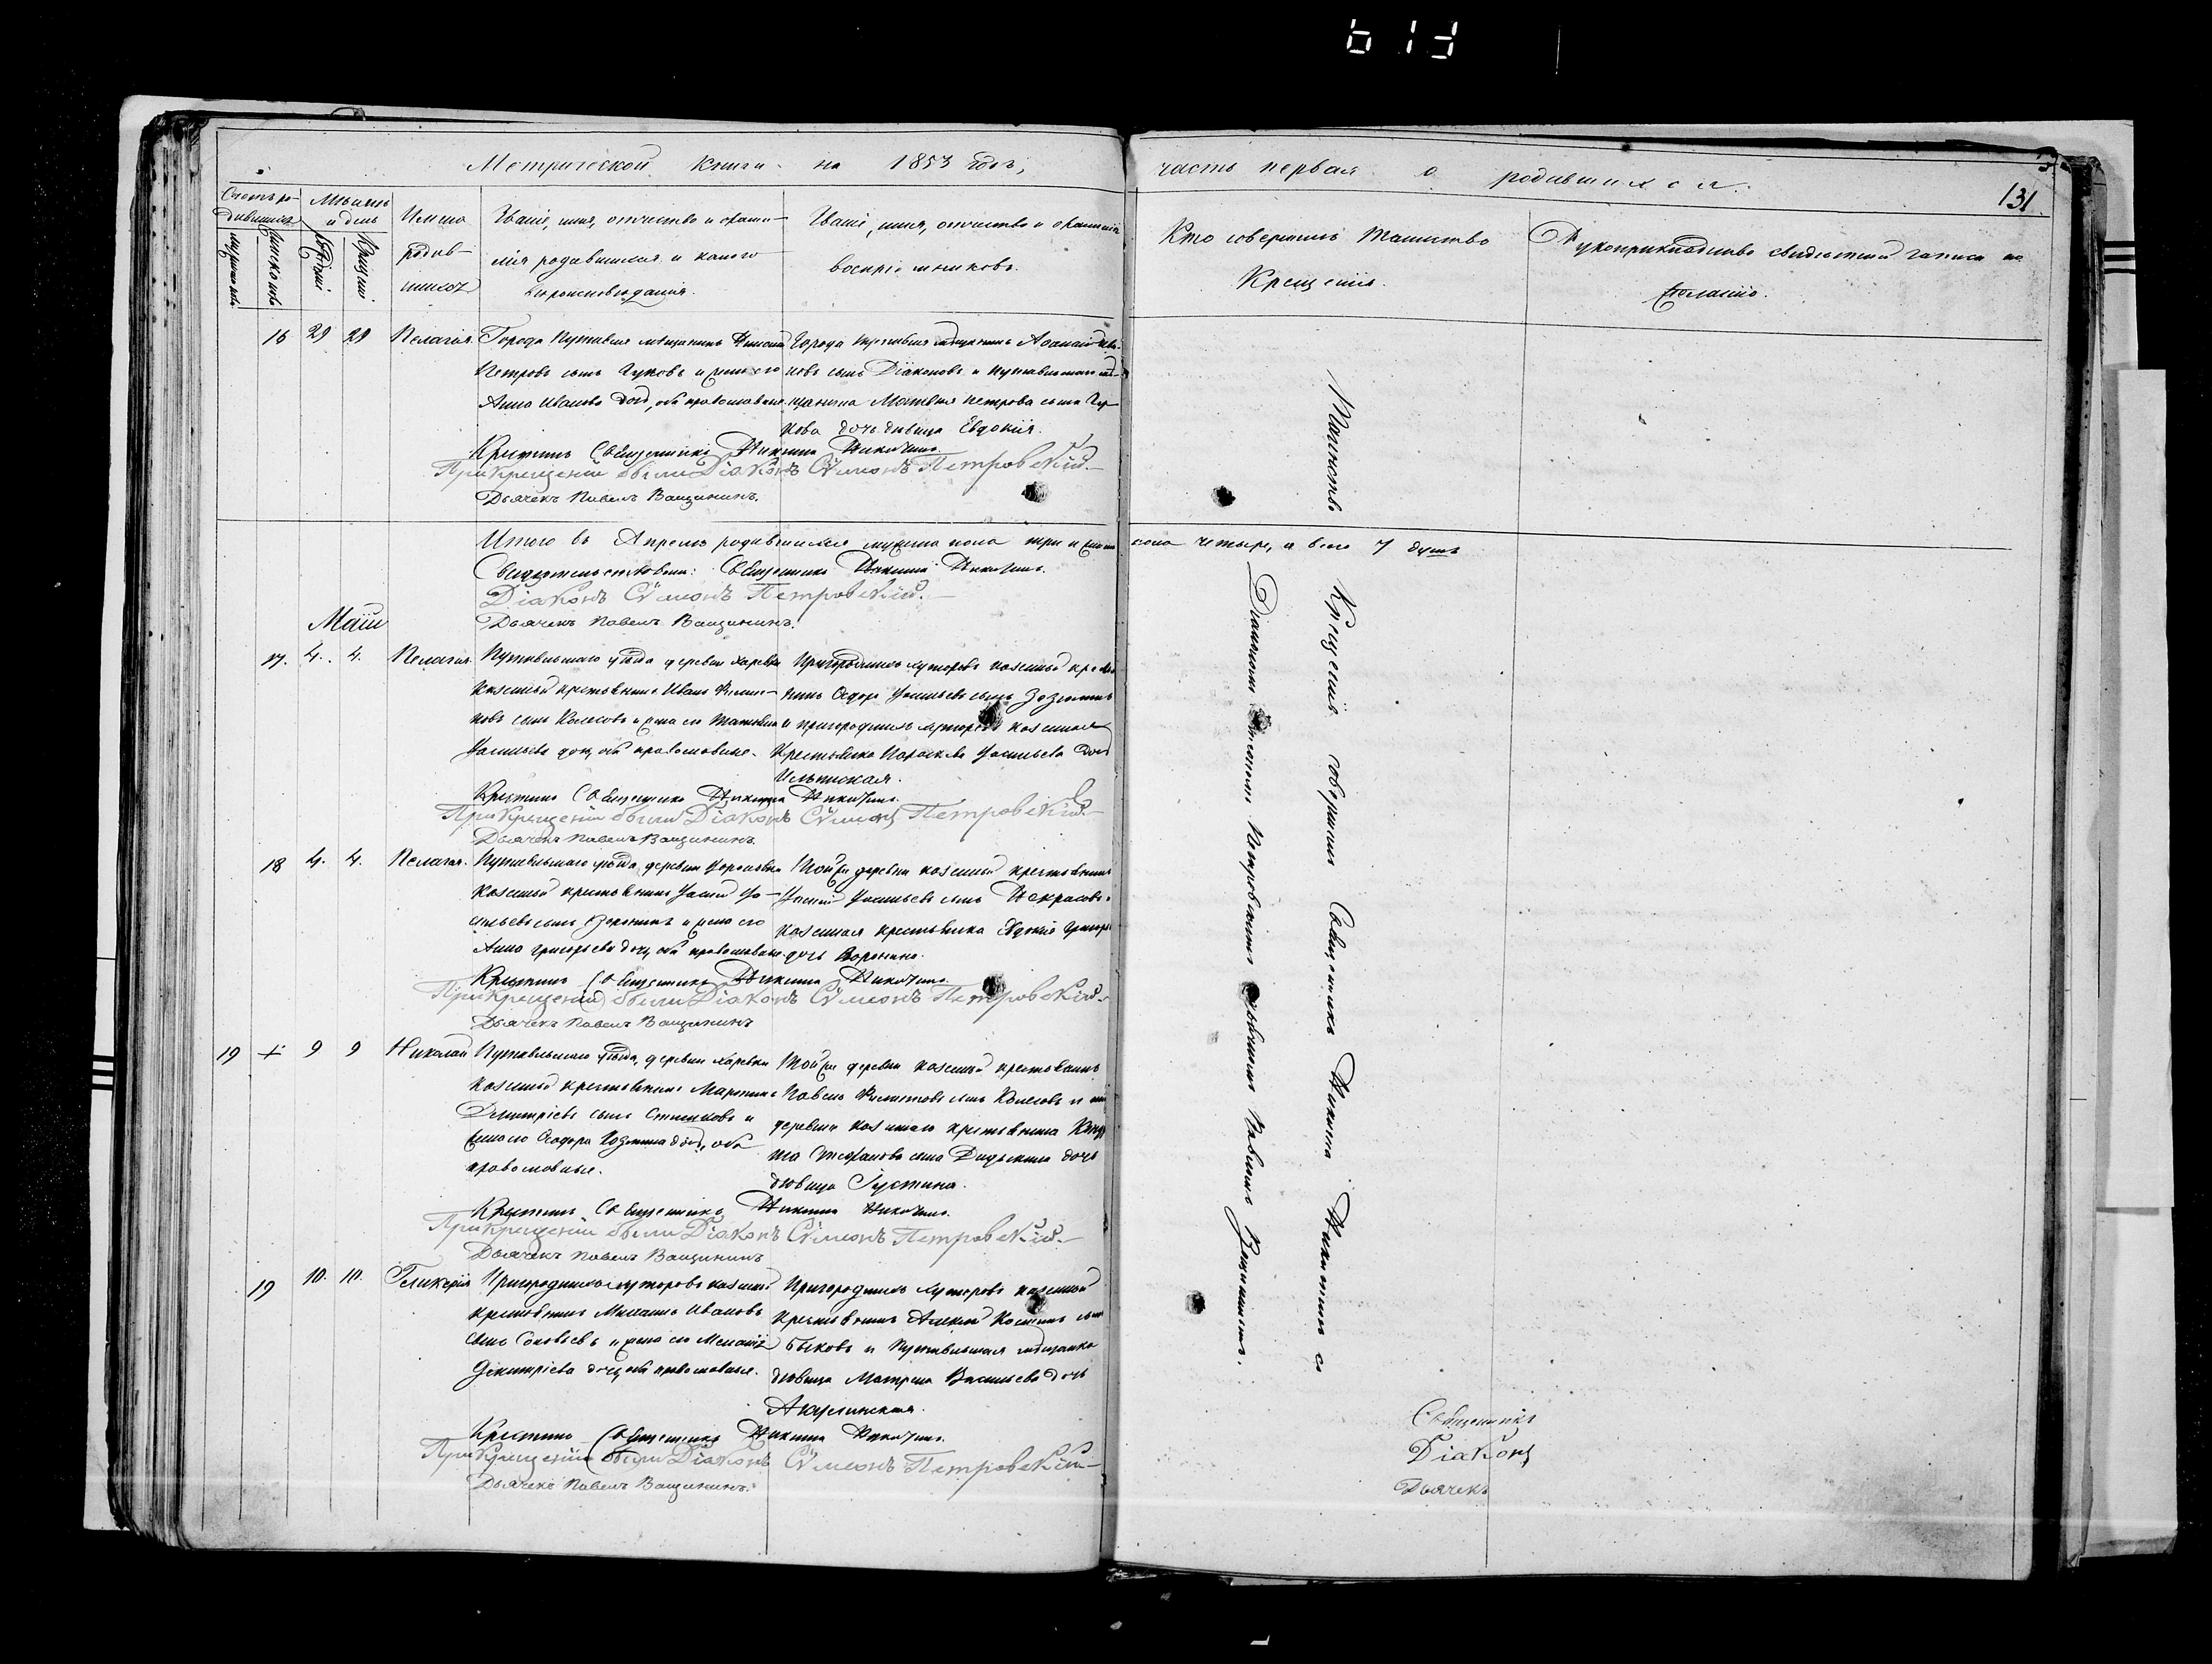 Метрической книги на 1853 годъ,
часть первая о родившихся.
131
Счетъ ро-
дившихся
Мѣсяцъ
и день
мужеска
женска
рожденія
Крещенія
Имена
родив-
шихся
Званіе, имя, отчество и фами-
лія родителей и какого
вѣроисповѣданія.
Званіе, имя, отчество и фамилія
воспріемниковъ.
Кто совершалъ таинство
Крещенія.
Рукоприкладство свидѣтелей записи по
желанію.
16 29 29 Пелагея.
Города Путивля мѣщанинъ
Петровъ сынъ Гуковъ и жена его
Анна Иванова дочь, оба православные.
Города Путивля мѣщанинъ Афанасій Ива-
новъ сынъ Діаконовъ и Путивльскаго мѣ-
щанина Матвѣя Петрова сына Гу-
кова дочь девица Евдокія.
Крестилъ Священникъ Никита Никитинъ.
При крещеніи были Діаконъ Сѵмеонъ Петровскій.
Дьячекъ Павелъ Ващининъ.
Итого въ Апрелѣ родившихся мужеска пола три и женска
пола четыре, а всего 7 душъ
Свидетельствовали: Священникъ Никита Никитинъ.
Діаконъ Сѵмеонъ Петровскій.
Дьячекъ Павелъ Ващининъ.
Маій
17. 4. 4. Пелагея.
Путивльскаго уѣзда деревни Харевки
казенный крестьянинъ Иванъ Филип-
повъ сынъ Колесовъ и жена его Татьяна
Васильева дочь, оба православные.
Пригородныхъ хуторовъ казенный крестья-
нинъ Федоръ Васильевъ сынъ
и пригородныхъ хуторовъ казенная
Крестьянка Параскева Васильева дочь
Ильинская.
Крестилъ Священникъ Никита Никитинъ.
При крещеніи были Діаконъ Сѵмеонъ Петровскій.
Дьячекъ Павелъ Ващининъ.
18 4. 4. Пелагея.
Путивльскаго уѣзда, деревни Вороновки
казенный крестьянинъ Василій Ва-
сильевъ сынъ Воронинъ и жена его
Анна Григорьева дочь, оба православные.
Той же деревни казенный крестьянинъ
Василій Васильевъ сынъ Некрасовъ и
казенная крестьянка Евдокія Григорьева
дочь Воронина.
Крестилъ Священникъ Никита Никитинъ
При крещеніи были Діаконъ Сѵмеонъ Петровскій.
Дьячекъ Павелъ Ващининъ
19 + 9 9 Николай
Путивльскаго уѣзда, деревни Харевки
казенный крестьянинъ Мартинъ
Димитріевъ сынъ и
жена его Феодора дочь, оба
православные.
Той же деревни казенный крестьянинъ
Павелъ Филиповъ сынъ Колесовъ и той
деревни казеннаго крестьянина
Стефанова сына дочь
девица Іустина.
Крестилъ Священникъ Никита Никитинъ.
При крещеніи были Діаконъ Сѵмеонъ Петровскій.
Дьячекъ Павелъ Ващининъ
19 10. 10. Гликерія
Пригородныхъ хуторовъ казенный
крестьянинъ Михаилъ Ивановъ
сынъ Соловьевъ и жена его Меланія
Димитріева дочь, оба православные.
Пригородныхъ хуторовъ казенный
крестьянинъ Алексій сынъ
Быковъ и Путивльская мѣщанка
девица Матрена Васильева дочь
Крестилъ Священникъ Никита Никитинъ.
При крещеніи были Діаконъ Сѵмеонъ Петровскій
Дьячекъ Павелъ Ващининъ.
Таинство Крещенія совершалъ Священникъ Никита Никитинъ съ
Діакономъ Сѵмеономъ Петровскимъ и Дьячкомъ Павломъ Ващининымъ.
Священникъ
Діаконъ
Дьячекъ